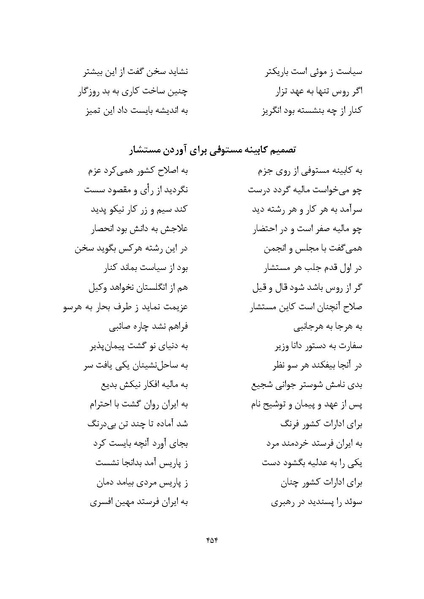 سیاست ز موئی است باریکتر نشاید سخن گفت از این بیشتر
اگر روس تنها به عهد تزار چنین ساخت کاری به بد روزگار
کنار از چه بنشسته بود انگریز به اندیشه بایست داد این تمیز
تصمیم کابینه مستوفی برای آوردن مستشار
به کابینه مستوفی از روی جزم به اصلاح کشور همی‌کرد عزم
چو می‌خواست مالیه گردد درست نگردید از رأی و مقصود سست
سرآمد به هر کار و هر رشته دید کند سیم و زر کار نیکو پدید
چو مالیه صفر است و در احتضار علاجش به دانش بود انحصار
همی‌گفت با مجلس و انجمن در این رشته هرکس بگوید سخن
در اول قدم جلب هر مستشار بود از سیاست بماند کنار
گر از روس باشد شود قال و قیل هم از انگلستان نخواهد وکیل
صلاح آنچنان است کاین مستشار عزیمت نماید ز طرف بحار به هرسو
به هرجا به هرجانبی فراهم نشد چاره صائبی
سفارت به دستور دانا وزیر به دنیای نو گشت پیمان‌پذیر
در آنجا بیفکند هر سو نظر به ساحل‌نشینان یکی یافت سر
بدی نامش شوستر جوانی شجیع به مالیه افکار نیکش بدیع
پس از عهد و پیمان و توشیح نام به ایران روان گشت با احترام
برای ادارات کشور فرنگ شد آماده تا چند تن بی‌درنگ
به ایران فرستد خردمند مرد بجای آورد آنچه بایست کرد
یکی را به عدلیه بگشود دست ز پاریس آمد بدانجا نشست
برای ادارات کشور چنان ز پاریس مردی بیامد دمان
سوئد را پسندید در رهبری به ایران فرستد مهین افسری
۴۵۴